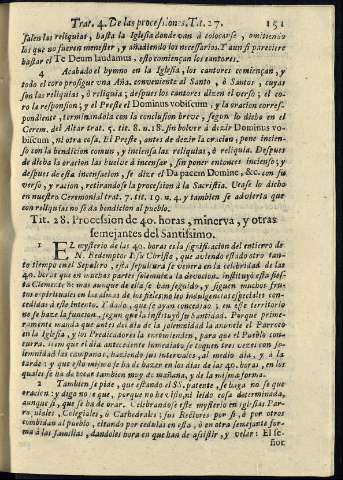 Trat. 4. De las processiones. Tit. 27. 151
salen las reliquias, basta la Iglesia donde van à colocarse, omitiendo
los que no fueren menester, y añadiendo los necessarios. Y aun si pareciere
bastar el Te Deum laudamus, esto comiençan los cantores.
4 Acabado el hymno en la Iglesia, los cantores comiençan, y
todo el coro prosigue vna Añā. conveniente al Santo, ò Santos, cuyas
son las reliquias, ò reliquia; despues los cantores dizen el verso; el co-
ro la responsion; y el Preste el Dominus vobiscum, y la oracion corres-
pondiente, terminandola con la conclusion breve, segun lo dicho en el
Cerem. del Altar trat. 5. tit. 8. n. 18. sin bolver à dezir Dominus vo-
biscum, ni otra cosa. El Preste, antes de dezir la oracion, pone incien-
so con la bendicion comun, y inciensa las reliquias, ò reliquia. Despues
de dicha la oracion las buelve à incensar, sin poner entonces incienso; y
despues de esta incensacion, se dize el Da pacem Domine, &c. con su
verso, y racion, retirandose la procession à la Sacristia. Vease lo dicho
en nuestro Ceremonial trat. 7. tit. 19. n. 4. y tambien se advierta que
con reliquias no se dà bendicion al pueblo.
Tit. 28. Procession de 40. horas, minerva, y otras
semejantes del Santissimo.
1 EL mysterio de las 40. horas es significacion del entierro de
N. Redemptor Jesu Christo, que aviendo estado otro tan-
to tiempo en el Sepulcro, esta sepultura se venera en la celebridad de las
40. horas que en muchas partes solemniza la devocion. instituyò esta fies-
ta Clemente 8. mas aunque de ella se han seguido, y siguen muchos fru-
tos espirituales en las almas de los fieles no leo indulgencias especiales con-
cedidas à este intento. Y dado, que se ayan concedido; en este territorio
no se haze la funcion, segun que la instituyò su Santidad. Porque prime-
ramente manda que antes del dia de la solemnidad la anuncie el Parroco
en la Iglesia, y los Predicadores la encomienden, para que el Pueblo con-
curra. Item que el dia antecedente inmediato se toquen tres vezes con so-
lemnidad las campanas, haziendo sus intervalos, al medio dia, y à la
tarde: y que esto mismo se ha de hazer en los dias de las 40. horas, en los
quales se ha de tocar tambien muy de mañana, y de la misma forma.
2 Tambien se pide, que estando el SS. patente, se haga no se que
oracion: y digo no se que, porque no he visto, ni leido cosa determinada,
aunque si, que se ha de orar. Celebrandose este mysterio en Iglesias Par-
roquiales, Colegiales, ò Cathedrales; sus Rectores por si, ò por otros
combidan al pueblo, citando por cedulas en esta, ò en otra semejante for-
ma à las familias, dandoles hora en que han de assistir, y velar: El se-
ñor